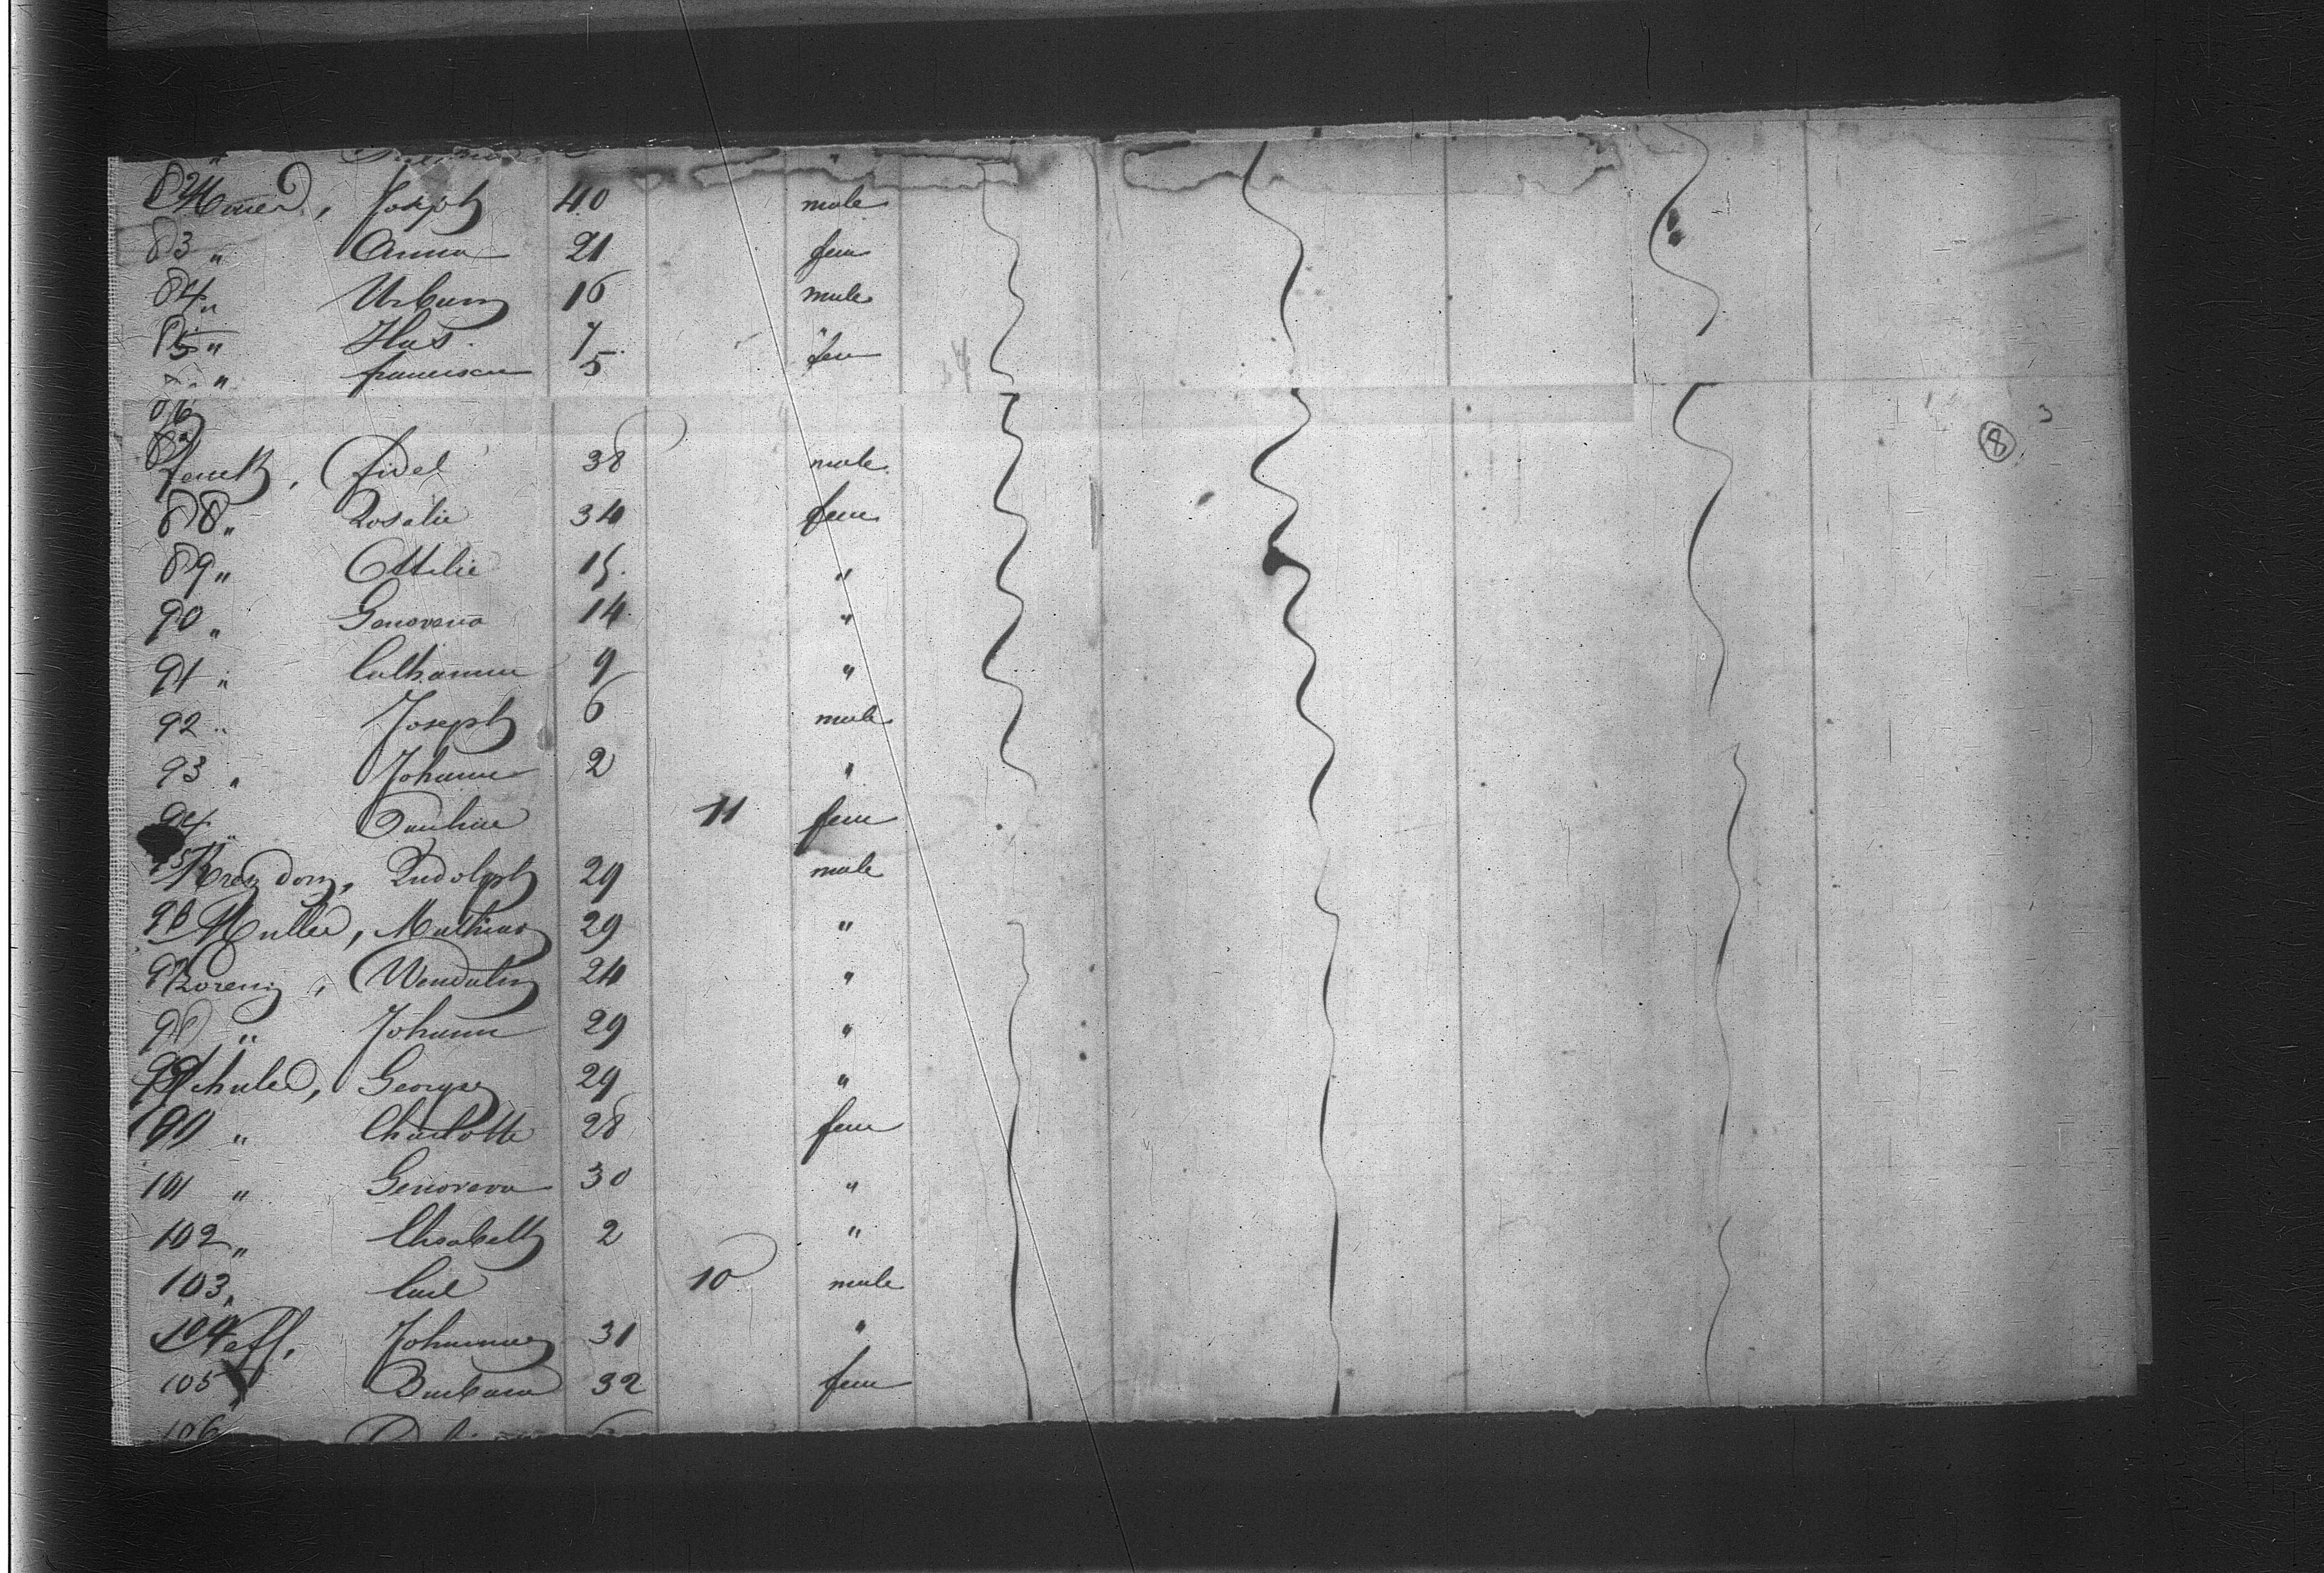 82 Maier, Joseph 40 male
83 " Anna 21 fem
84 " Urban 16 male
85 " 7 "
" Francisca 5 fem
86
87
Fidel 38 male
88 " Rosalie 34 fem
89 " Ottilie 15 "
90 " Genoveva 14 "
91 " Catharina 9 "
92 " Joseph 6 male
93 " Johann 2 "
94 " Pauline 11 fem
95 Rudolph 29 male
96 Muller, Mathias 29 "
97 Wendelin 24 "
98 " Johann 29 "
99 Schuler, George 29 "
100 " Charlotte 28 fem
101 " Genoveva 30 "
102 " Elisabeth 2 "
103 " Carl 10 male
104 Neff, Johannes 31 "
105 " Barbara 32 fem
106
8
3